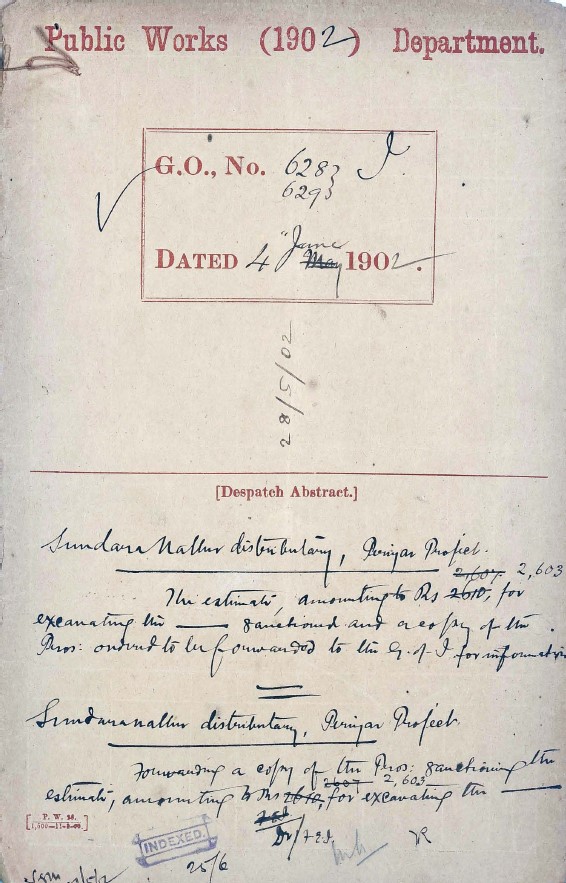 Public Works (1902) Department.
G.O., No. 6283 I.
6293
DATED 4th June May 1902.
28/5/02
[Despatch Abstract.]
Sundaranallur distributary, Periyar Project.
2,607 2,603
The estimate, amounting to Rs 2610, for
excavating the —— sanctioned and a copy of the
Pros: ordered to be forwarded to the G. of I. for information
Sundaranallur distributary, Periyar Project.
Forwarding a copy of the Pros: sanctioning the
2607 2,603
estimate, amounting to Rs 2610, for excavating the ——
P. W. 36.
INDEXED.
25/6